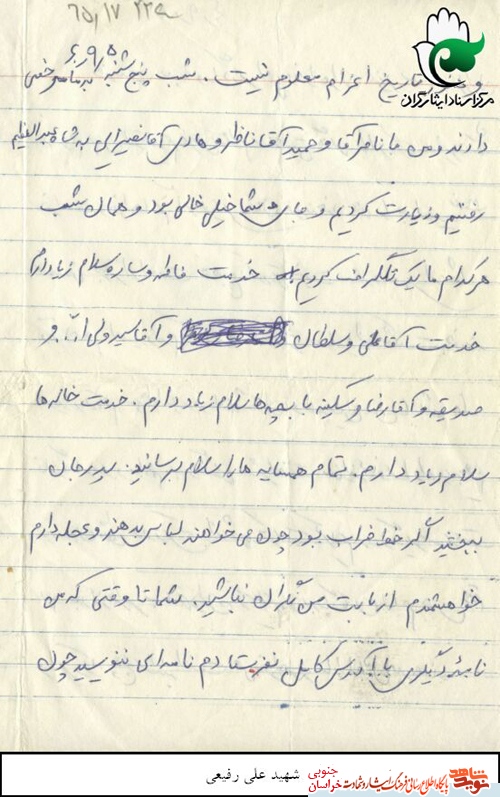 ۶۵/۱۷ ۲۲۹
۶۰/۹/۵
مرکز اسناد ایثارگران
تاریخ اعزام معلوم نیست. شب پنج شنبه به ما مرخصی
دادند و من با ناصر آقا و حمید آقا ناظر و هادی آقا نصیرایی به شاه عبدالعظیم
رفتیم و زیارت کردیم و جای شما خیلی خالی بود و همان شب
هر کدام ما یک تلگراف کردیم خدمت فاطمه و ساره سلام زیاد دارم
خدمت آقا علی و سلطان و آقا سید ولی ا... و
صدیقه و آقا رضا و سکینه با بچه ها سلام زیاد دارم. خدمت خاله ها
سلام زیاد دارم. تمام همسایه ها را سلام برسانید. پدر جان
ببخشید اگر خط خراب بود چون می خواهند لباس بدهند و عجله دارم
خواهشمندم از بابت من نگران نباشید. شما تا وقتی که من
نامهٔ دیگری با آدرس کامل نفرستادم نامه ای ننویسید چون
شهید علی رفیعی
خراسان جنوبی
نوید شاهد
پایگاه اطلاع رسانی فرهنگ ایثار و شهادت